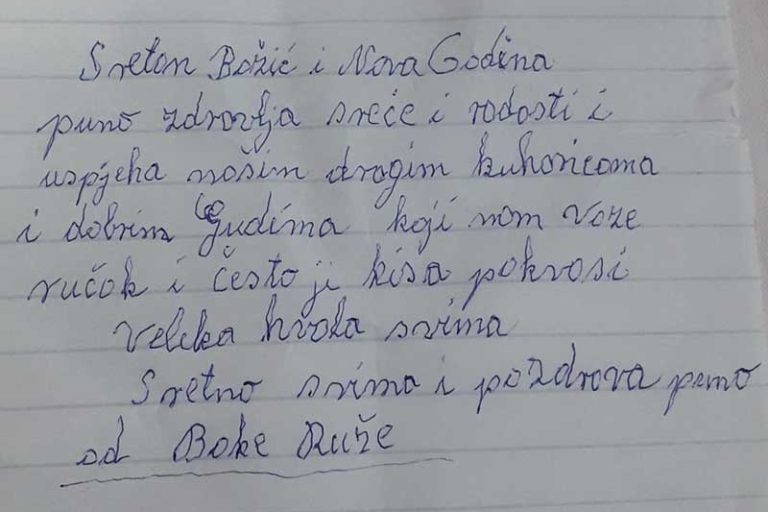 Sretan Božić i Nova Godina
puno zdravlja sreće i radosti i
uspjeha našim dragim kuharicama
i dobrim ljudima koji nam voze
ručak i često ji kiša pokvasi
Velika hvala svima
Sretno svima i pozdrava puno
od Bake Ruže